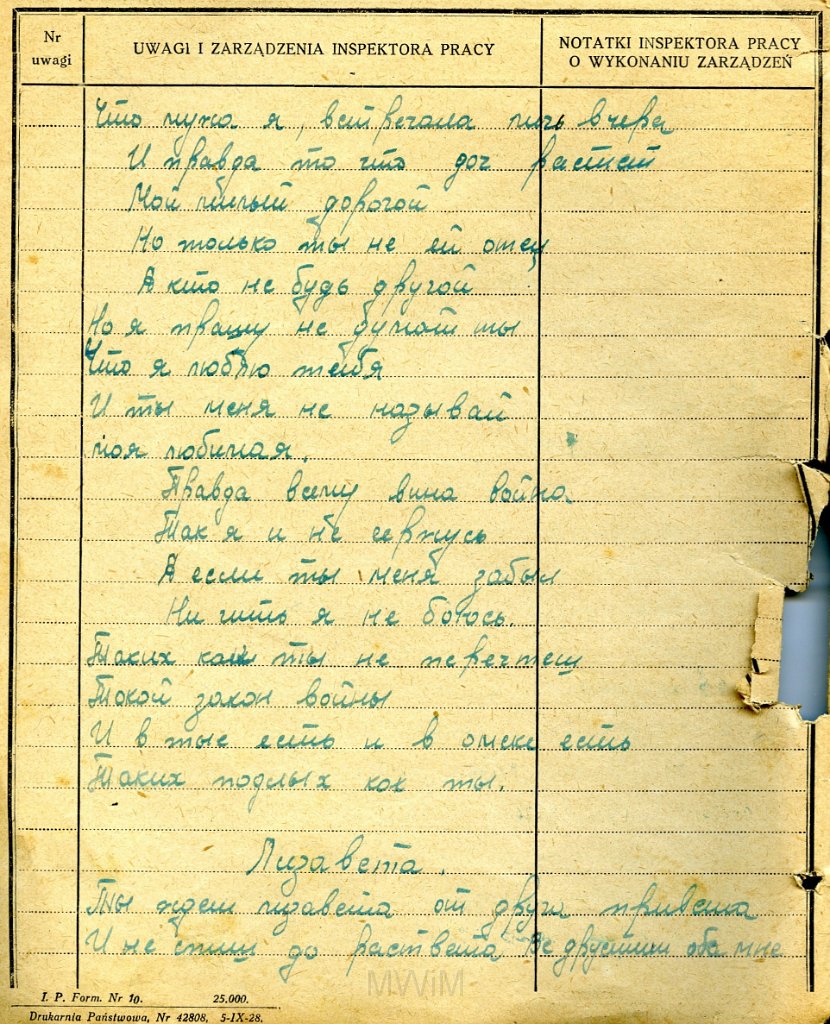 Nr uwagi
UWAGI I ZARZĄDZENIA INSPEKTORA PRACY
NOTATKI INSPEKTORA PRACY
O WYKONANIU ZARZĄDZEŃ
Что мужа я, встречала лишь вчера
И правда то что доч растет
Мой милый дорогой
Но только ты не ей отец
А кто не будь другой
Но я прашу не думай ты
Что я люблю тебя
И ты меня не называй
моя любимая.
Правда всему вина война
Так я и не сержусь
А если ты меня забыл
Ни чить я не боюсь.
Таких как ты не перечтеш
Такой закон войны
И в тыс есть и в омске есть
Таких подлых как ты.
Лизавета.
Ты ждеш лизавета от друга привета
И не спиш до раствета Все друстиш оба мне
MWiM
I. P. Form. Nr 10. 25.000.
Drukarnia Państwowa, Nr 42808, 5-IX-28.